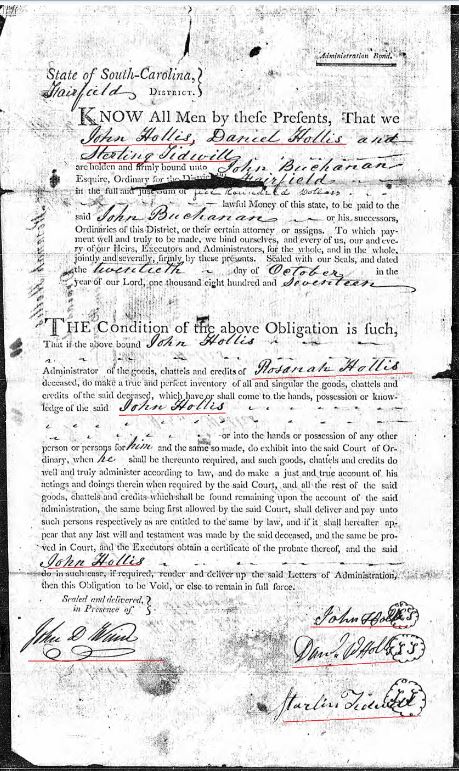 Administration Bond.
State of South-Carolina,
Fairfield DISTRICT.
KNOW All Men by these Presents, That we
John Hollis, Daniel Hollis and
Sterling Tidwell
are holden and firmly bound unto John Buchanan
Esquire, Ordinary for the District Fairfield
in the full and just sum of five hundred Dollars
lawful Money of this state, to be paid to the
said John Buchanan or his successors,
Ordinaries of this District, or their certain attorney or assigns. To which pay-
ment well and truly to be made, we bind ourselves, and every of us, our and eve-
ry of our Heirs, Executors and Administrators, for the whole, and in the whole,
jointly and severally, firmly by these presents. Sealed with our Seals, and dated
the twentieth day of October in the
year of our Lord, one thousand eight hundred and Seventeen
THE Condition of the above Obligation is such,
That if the above bound John Hollis
Administrator of the goods, chattels and credits of Rosanah Hollis
deceased, do make a true and perfect inventory of all and singular the goods, chattels and
credits of the said deceased, which have or shall come to the hands, possession or know-
ledge of the said John Hollis
or into the hands or possession of any other
person or persons for him and the same so made, do exhibit into the said Court of Or-
dinary, when he shall be thereunto required, and such goods, chattels and credits do
well and truly administer according to law, and do make a just and true account of his
actings and doings therein when required by the said Court, and all the rest of the said
goods, chattels and credits which shall be found remaining upon the account of the said
administration, the same being first allowed by the said Court, shall deliver and pay unto
such persons respectively as are entitled to the same by law, and if it shall hereafter ap-
pear that any last will and testament was made by the said deceased, and the same be pro-
ved in Court, and the Executors obtain a certificate of the probate thereof, and the said
John Hollis
do in such case, if required, render and deliver up the said Letters of Administration,
then this Obligation to be Void, or else to remain in full force.
Sealed and delivered,
in Presence of
John Hollis
John D
Hollis
Starlin Tidwell